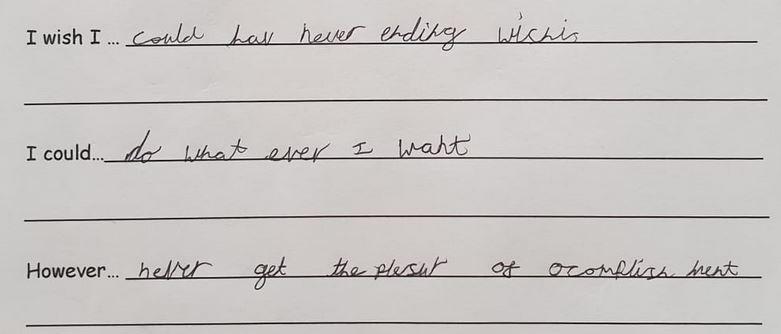 I wish I ... could hav never ending wishis
I could... do what ever I want
However... never get the plesur of acomplish ment